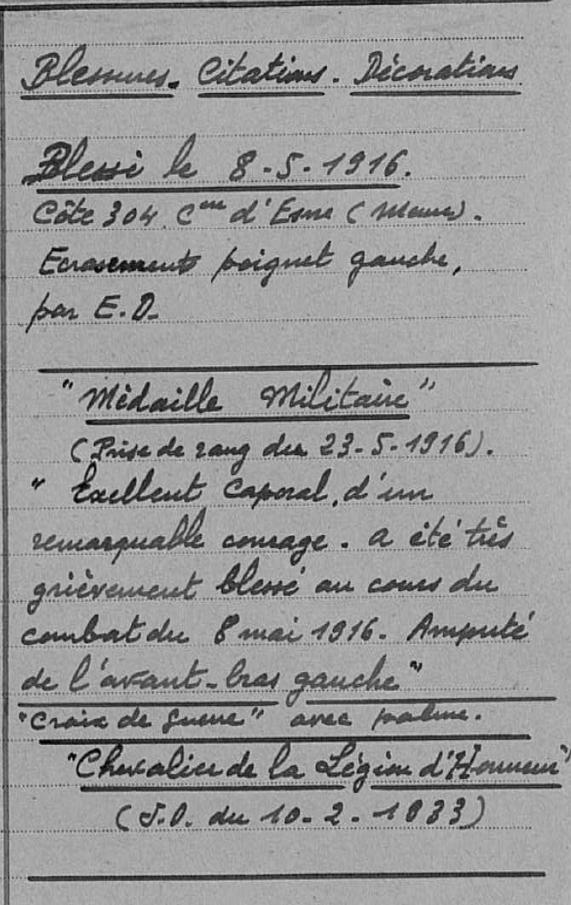 Blessures. Citations. Décorations
Blessé le 8-5-1916.
Côte 304 Cne d'Esne (Meuse).
Ecrasement poignet gauche,
par E.O.
"Médaille Militaire"
(Prise de rang du 23-5-1916).
" Excellent caporal, d'un
remarquable courage. a été très
grièvement blessé au cours du
combat du 8 mai 1916. Amputé
de l'avant-bras gauche"
"Croix de Guerre" avec palme.
"Chevalier de la Légion d'Honneur"
(J.O. du 10-2-1933)